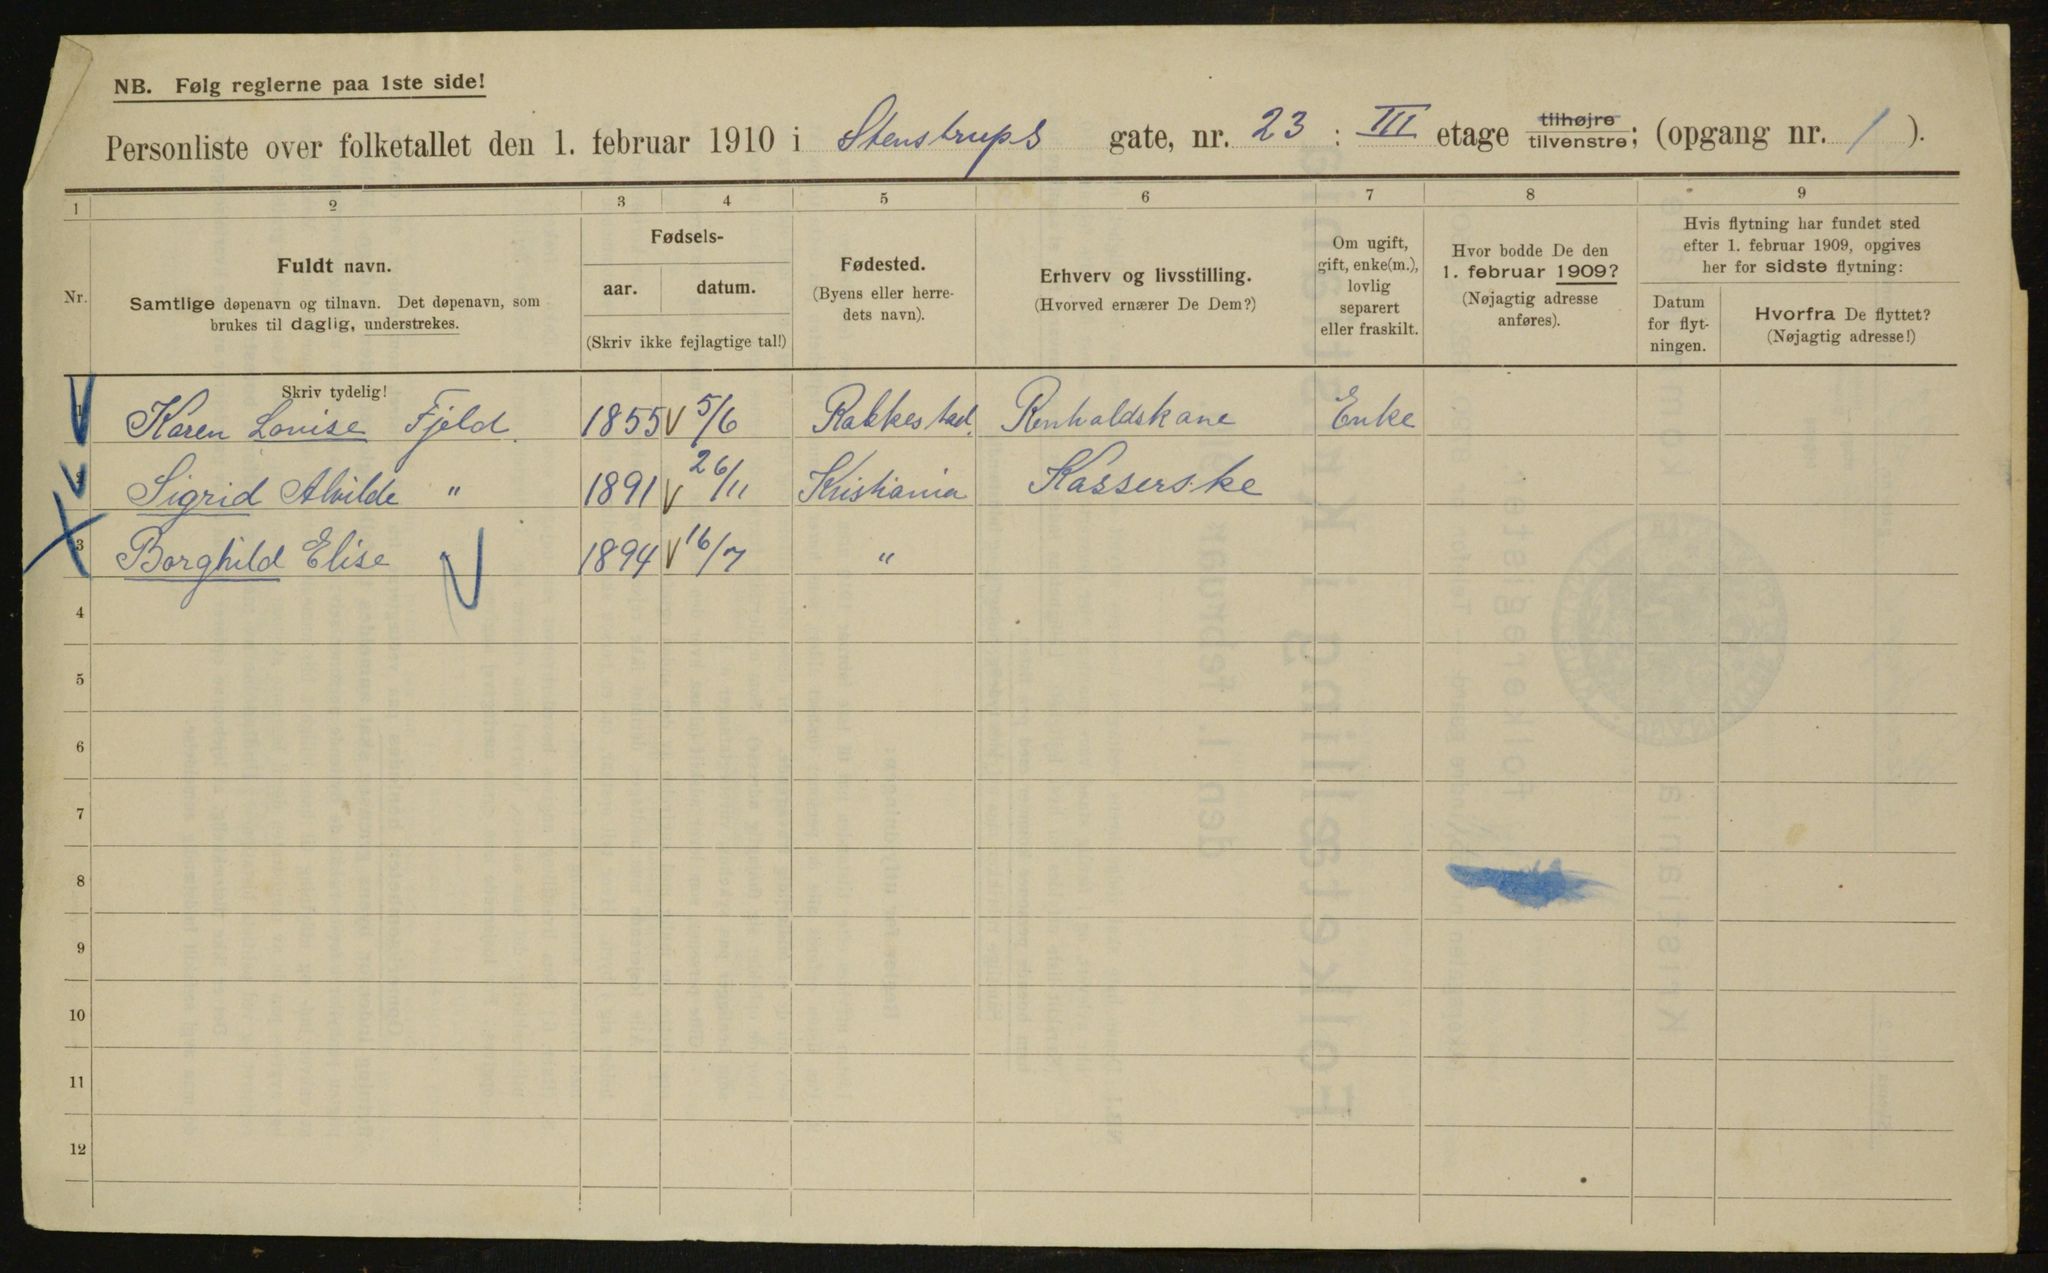 NB. Følg reglerne paa 1ste side!
Personliste over folketallet den 1. februar 1910 i Stenstrups gate, nr. 23 : III etage tilhøjre tilvenstre; (opgang nr. 1 ).
1 2 3 4 5 6 7 8 9
Nr.
Fuldt navn.
Samtlige døpenavn og tilnavn. Det døpenavn, som
brukes til daglig, understrekes.
Fødsels-
aar. datum.
(Skriv ikke fejlagtige tal!)
Fødested.
(Byens eller herre-
dets navn).
Erhverv og livsstilling.
(Hvorved ernærer De Dem?)
Om ugift,
gift, enke(m.),
lovlig
separert
eller fraskilt.
Hvor bodde De den
1. februar 1909?
(Nøjagtig adresse
anføres).
Hvis flytning har fundet sted
efter 1. februar 1909, opgives
her for sidste flytning:
Datum
for flyt-
ningen.
Hvorfra De flyttet?
(Nøjagtig adresse!)
Skriv tydelig!
1 Karen Louise Fjeld. 1855 5/6 Rakkestad. Renholdskone Enke
2 Sigrid Alvilde " 1891 26/11 Kristiania Kasserske
3 Borghild Elise 1894 16/7 "
4
5
6
7
8
9
10
11
12